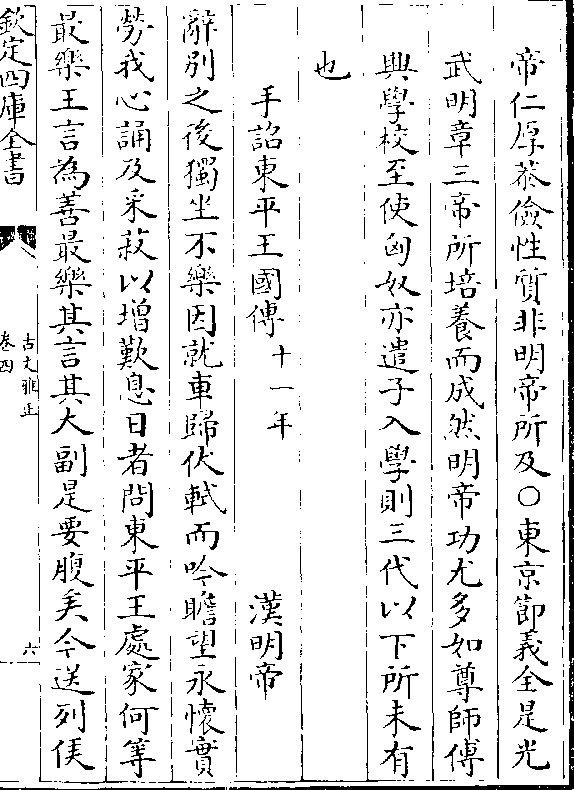 帝仁厚恭儉性質非明帝所及○東京節義全是光
武明章三帝所培養而成然明帝功尤多如尊師傅
興學校至使匈奴亦遣子入學則三代以下所未有
也
手詔東平王國傅十一年　漢明帝
辭別之後獨坐不樂因就車歸伏軾而吟瞻望永懷實
勞我心誦及采菽以增歎息日者問東平王處家何等
最樂王言為善最樂其言其大副是要腹矣今送列侯
欽定四庫全書
古文雅正
卷四
六